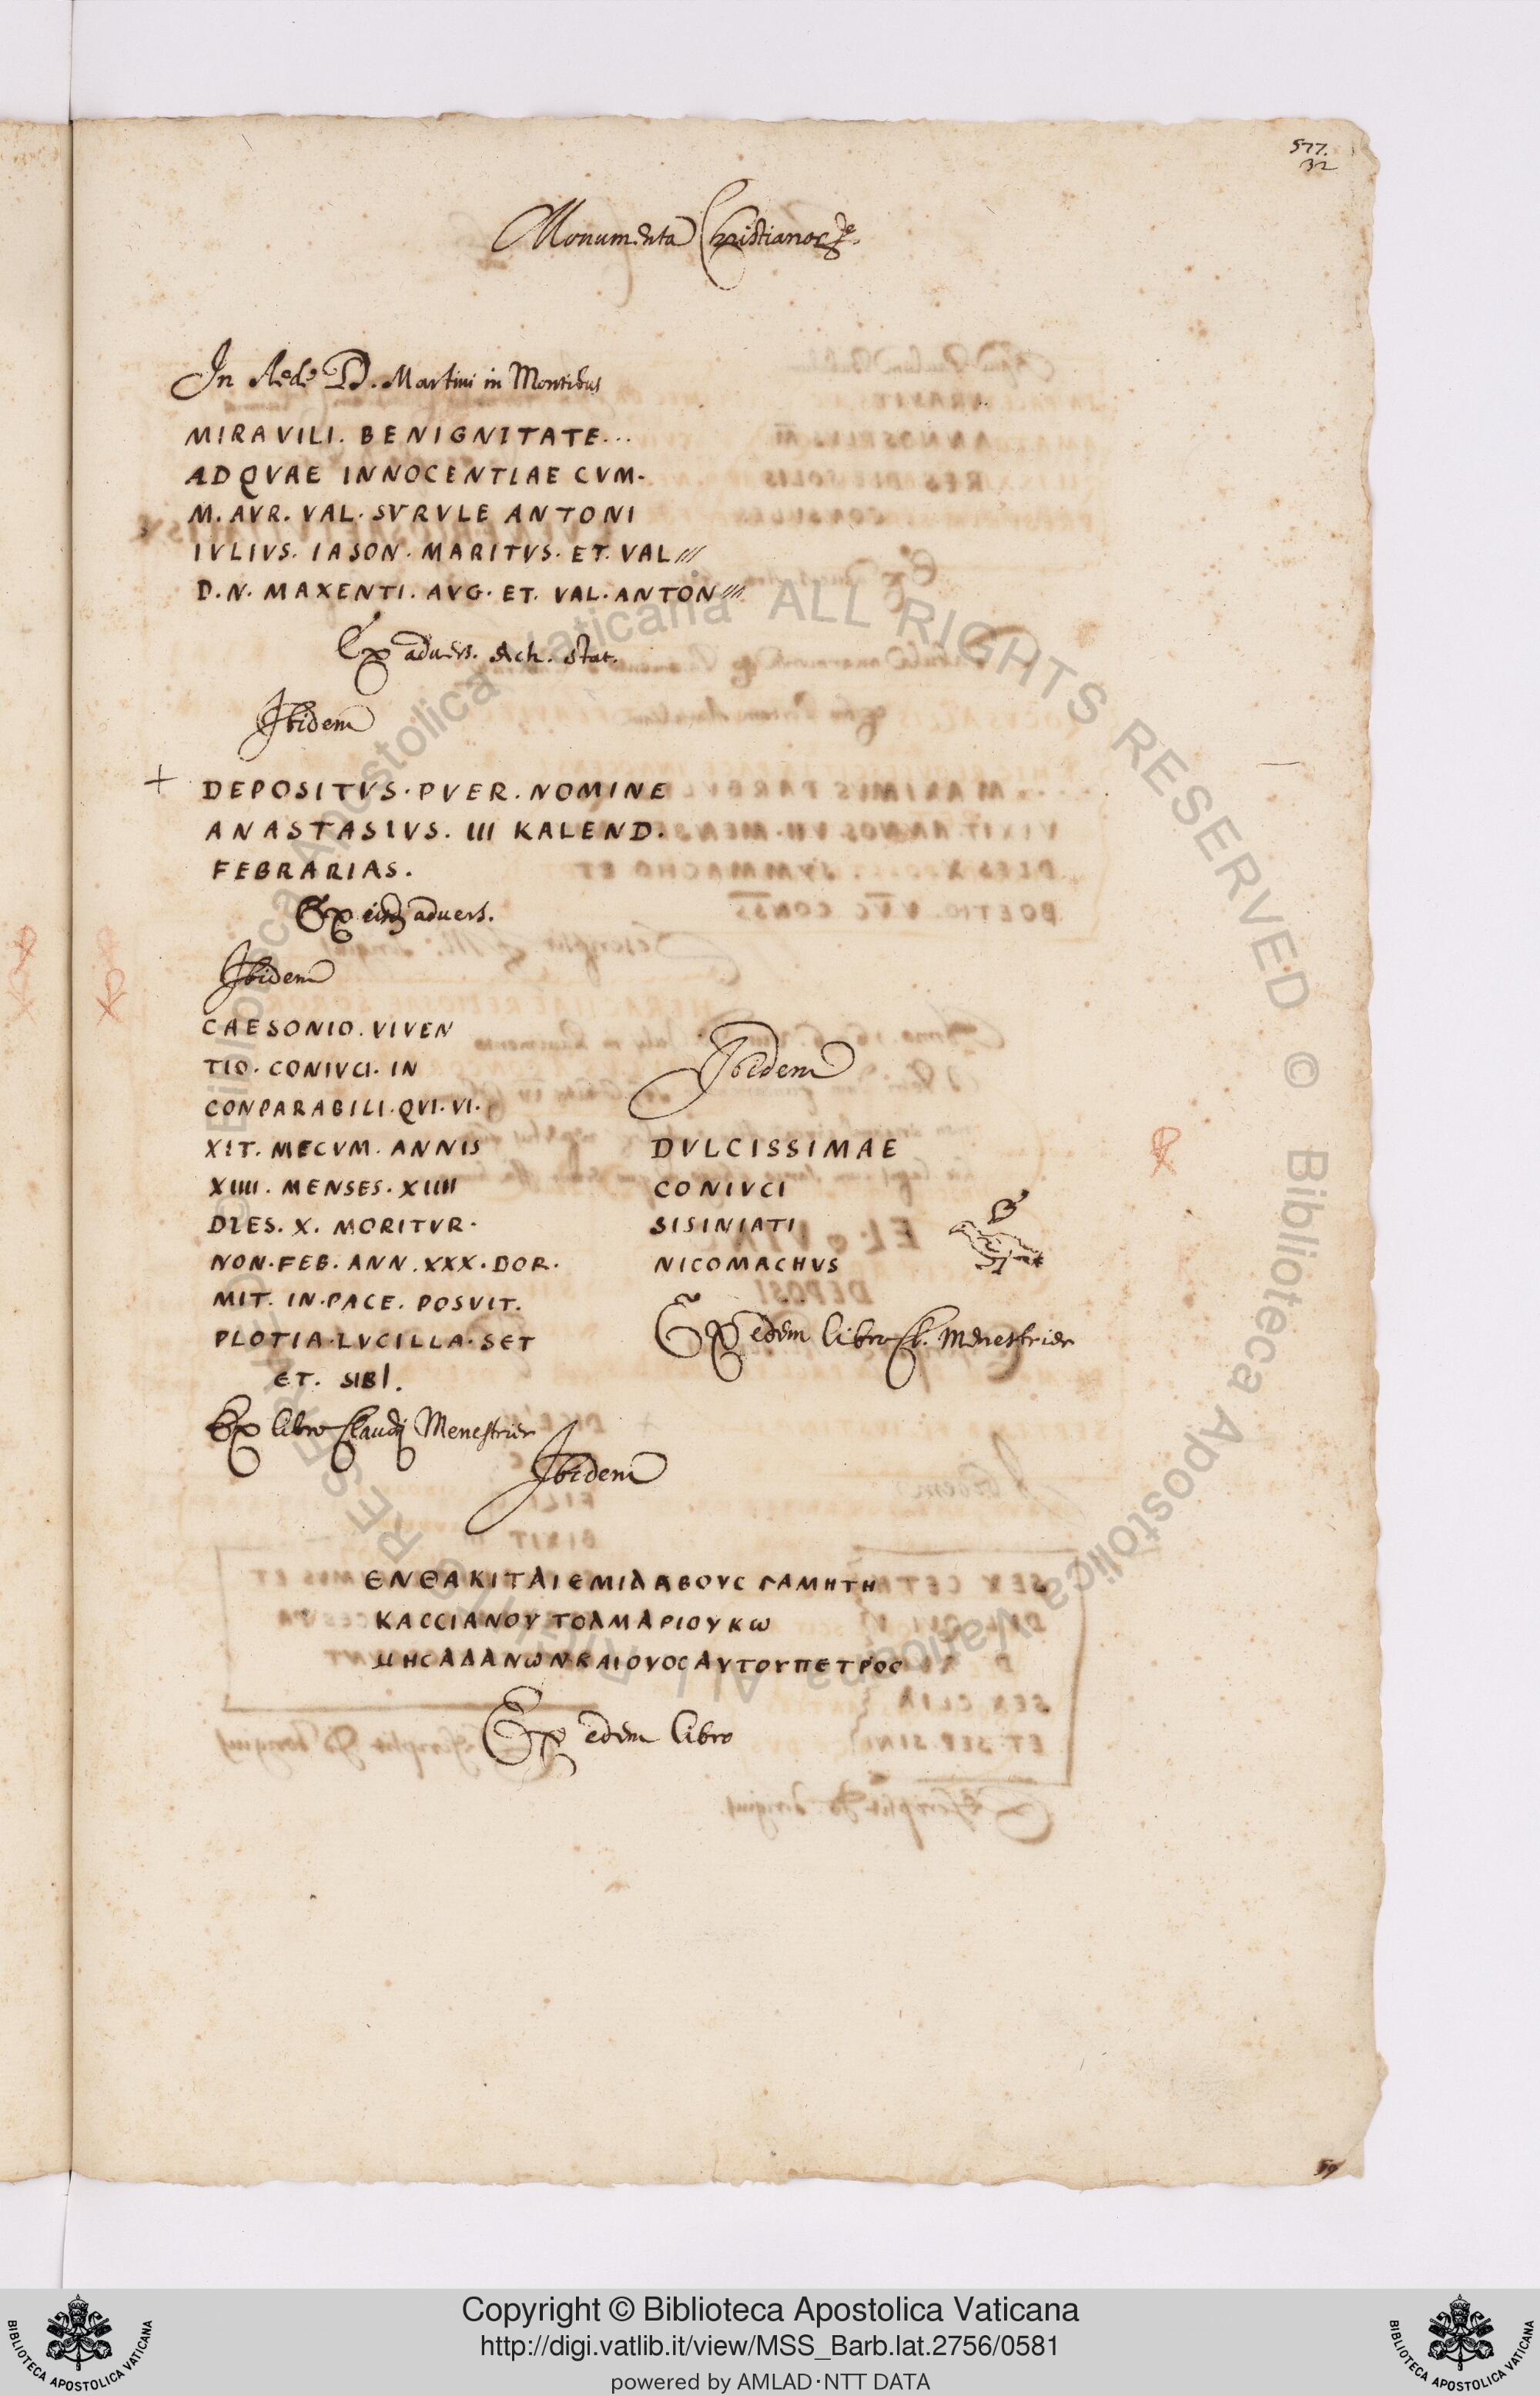 577.
32
Monumenta Christianor
In Aede D. Martini in Montibus
MIRAVILI. BENIGNITATE...
ADQVAE INNOCENTIAE CVM.
M. AVR. VAL. SVRVLE ANTONI
IVLIVS. IASON. MARITVS. ET. VAL///
D. N. MAXENTI. AVG. ET. VAL. ANTON///
Ex advers. Ach. Stat.
Ibidem
+ DEPOSITVS. PVER. NOMINE
ANASTASIVS. III KALEND.
FEBRARIAS.
Ex eisd advers.
Ibidem
CAESONIO. VIVEN
TIO. CONIVCI. IN
CONPARABILI. QVI. VI.
XIT. MECVM. ANNIS
XIIII. MENSES. XIIII
DIES. X. MORITVR.
NON. FEB. ANN. XXX. DOR.
MIT. IN. PACE. POSVIT.
PLOTIA. LVCILLA. SET
ET. SIBI.
Ex libro Claudij Menestrier
Ibidem
DVLCISSIMAE
CONIVCI
SISINIATI
NICOMACHVS
Ex edem libro Cl. Menestrier
Ibidem
ΕΝΘΑΚΙΤΑΙΕΜΙΑΑΒΟΥϹ ΓΑΜΗΤΗ
ΚΑϹϹΙΑΝΟΥ ΤΟΑΜΑΡΙΟΥ ΚΩ
ΜΗϹΑΔΑΝΩΝΚΑΙΟΥΟϹΑΥΤΟΥΠΕΤΡΟϹ
Ex edem libro
59
© Biblioteca Apostolica Vaticana ALL RIGHTS RESERVED © Biblioteca Apostolica Vaticana ALL RIGHTS RESERVED
Copyright © Biblioteca Apostolica Vaticana
http://digi.vatlib.it/view/MSS_Barb.lat.2756/0581
powered by AMLAD·NTT DATA
BIBLIOTECA APOSTOLICA VATICANA
BIBLIOTECA APOSTOLICA VATICANA